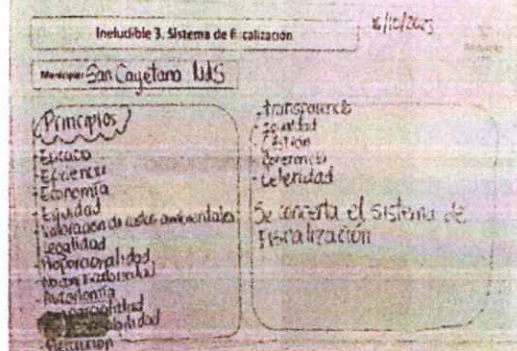 16/10/2023
Ineludible 3. Sistema de fiscalización
Municipio: San Cayetano NdS
Principios
- Eficacia
- Eficiencia
- Economía
- Equidad
- Valoración de costos ambientales
- Legalidad
- Proporcionalidad
- Autonomía
- Imparcialidad
- transparencia
- Igualdad
- Gestión
- Coherencia
- Celeridad
Se concerta el sistema de
Fiscalización